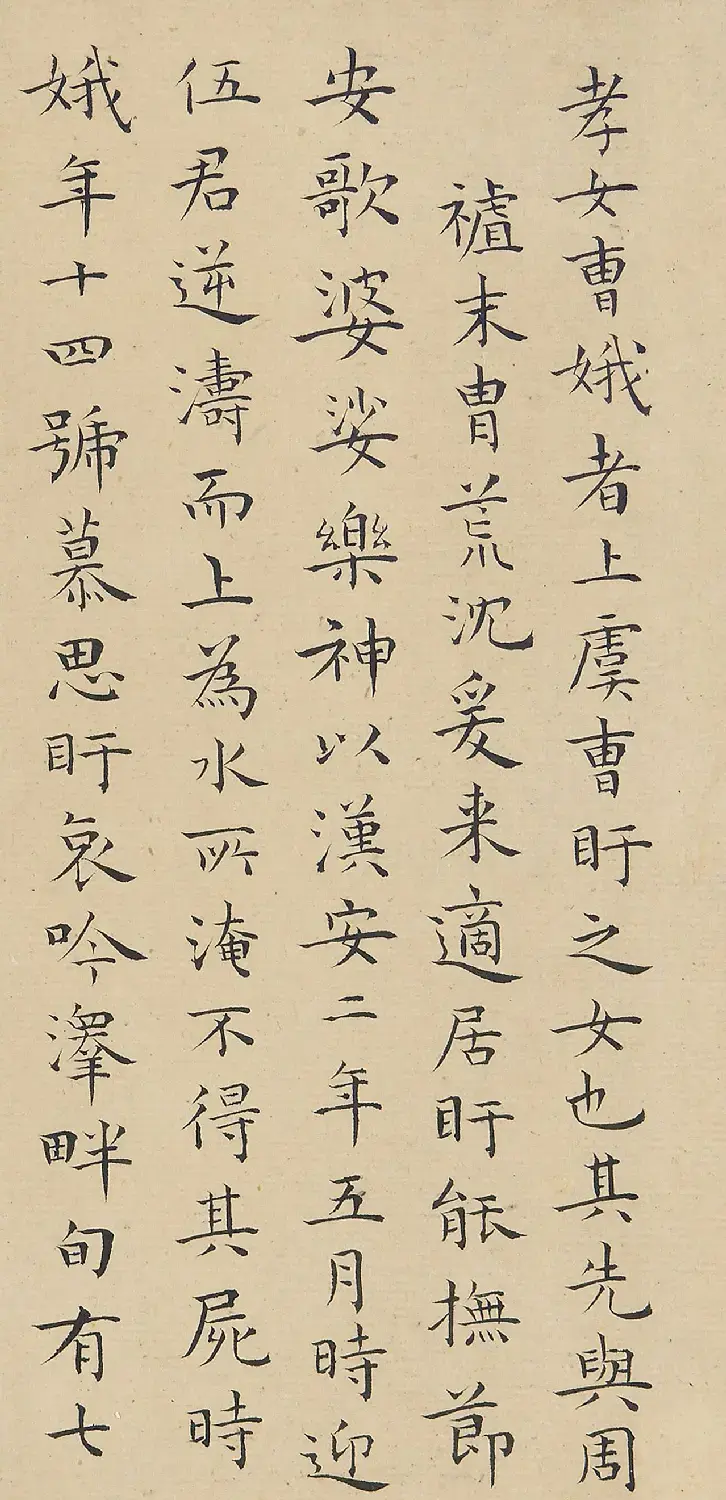 孝女曹娥者上虞曹盱之女也其先與周
禇末冑荒沈爰来適居盱能撫節
安歌婆娑樂神以漢安二年五月時迎
伍君逆濤而上為水所淹不得其屍時
娥年十四號慕思盱哀吟澤畔旬有七